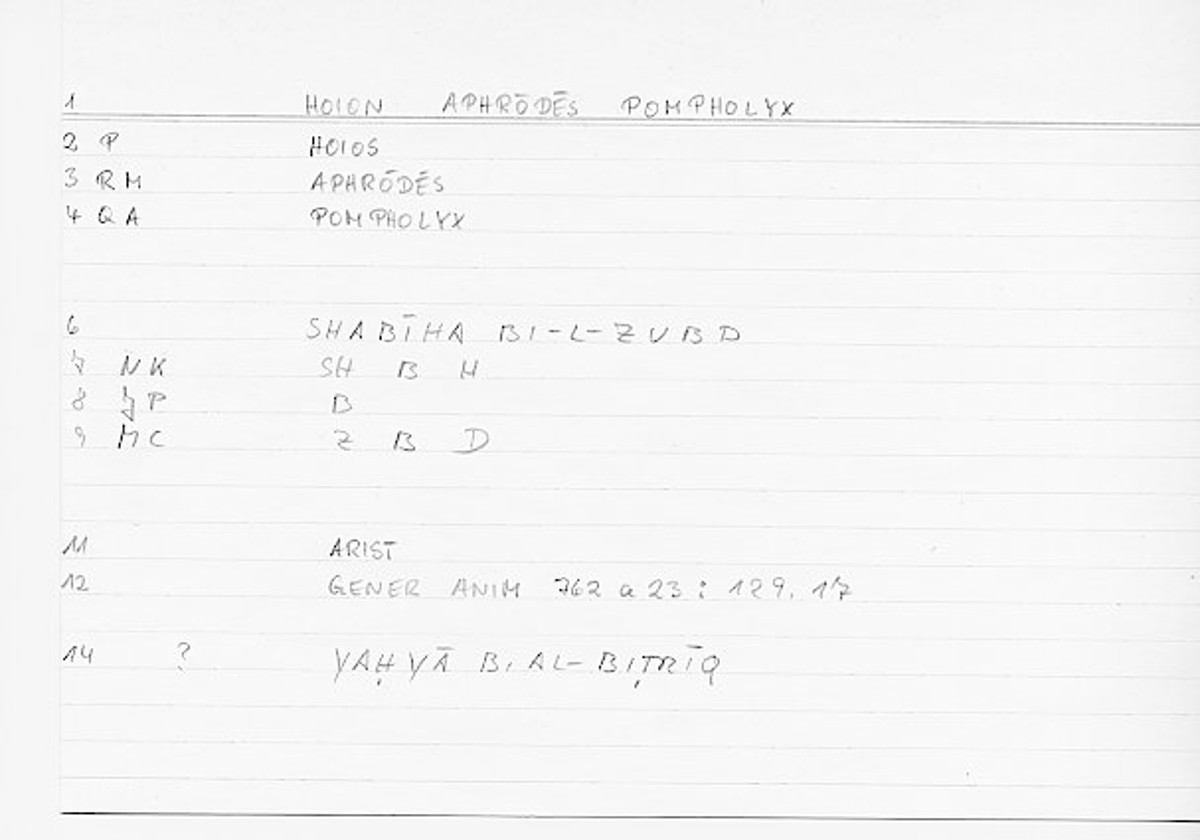 1 HOION APHRŌDĒS POMPHOLYX
2 P HOIOS
3 RM APHRŌDĒS
4 QA POMPHOLYX
6 SHABĪHA BI-L-ZUBD
7 NK SH B H
8 JP B
9 MC Z B D
11 ARIST
12 GENER ANIM 762 a 23 : 129. 17
14 ? YAḤYĀ B. AL-BIṬRĪQ